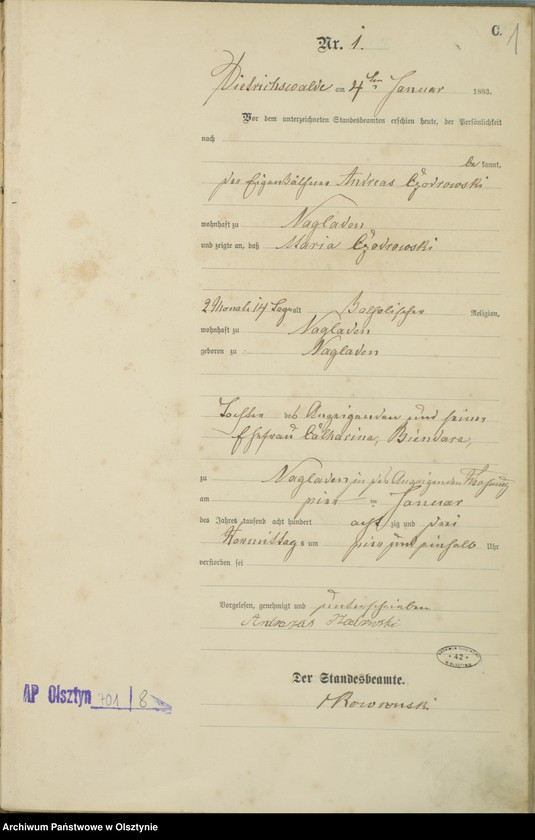 C. 1
Nr. 1.
Dietrichswalde am 4ten Januar 1883.
Vor dem unterzeichneten Standesbeamten erschien heute, der Persönlichkeit
nach
bekannt,
der Eigenkäthner Andreas
wohnhaft zu Nagladen
und zeigte an, daß Maria
2 Monate 14 Tage alt Katholischer Religion,
wohnhaft zu Nagladen
geboren zu Nagladen
Tochter des Anzeigenden und seiner
Ehefrau Catharina,
zu Nagladen in des Anzeigenden Wohnung
am Januar
des Jahres tausend acht hundert achtzig und drei
Vormittags um und einhalb Uhr
verstorben sei
Vorgelesen, genehmigt und unterschrieben
Der Standesbeamte.
42
AP Olsztyn 701 8
Archiwum Państwowe w Olsztynie